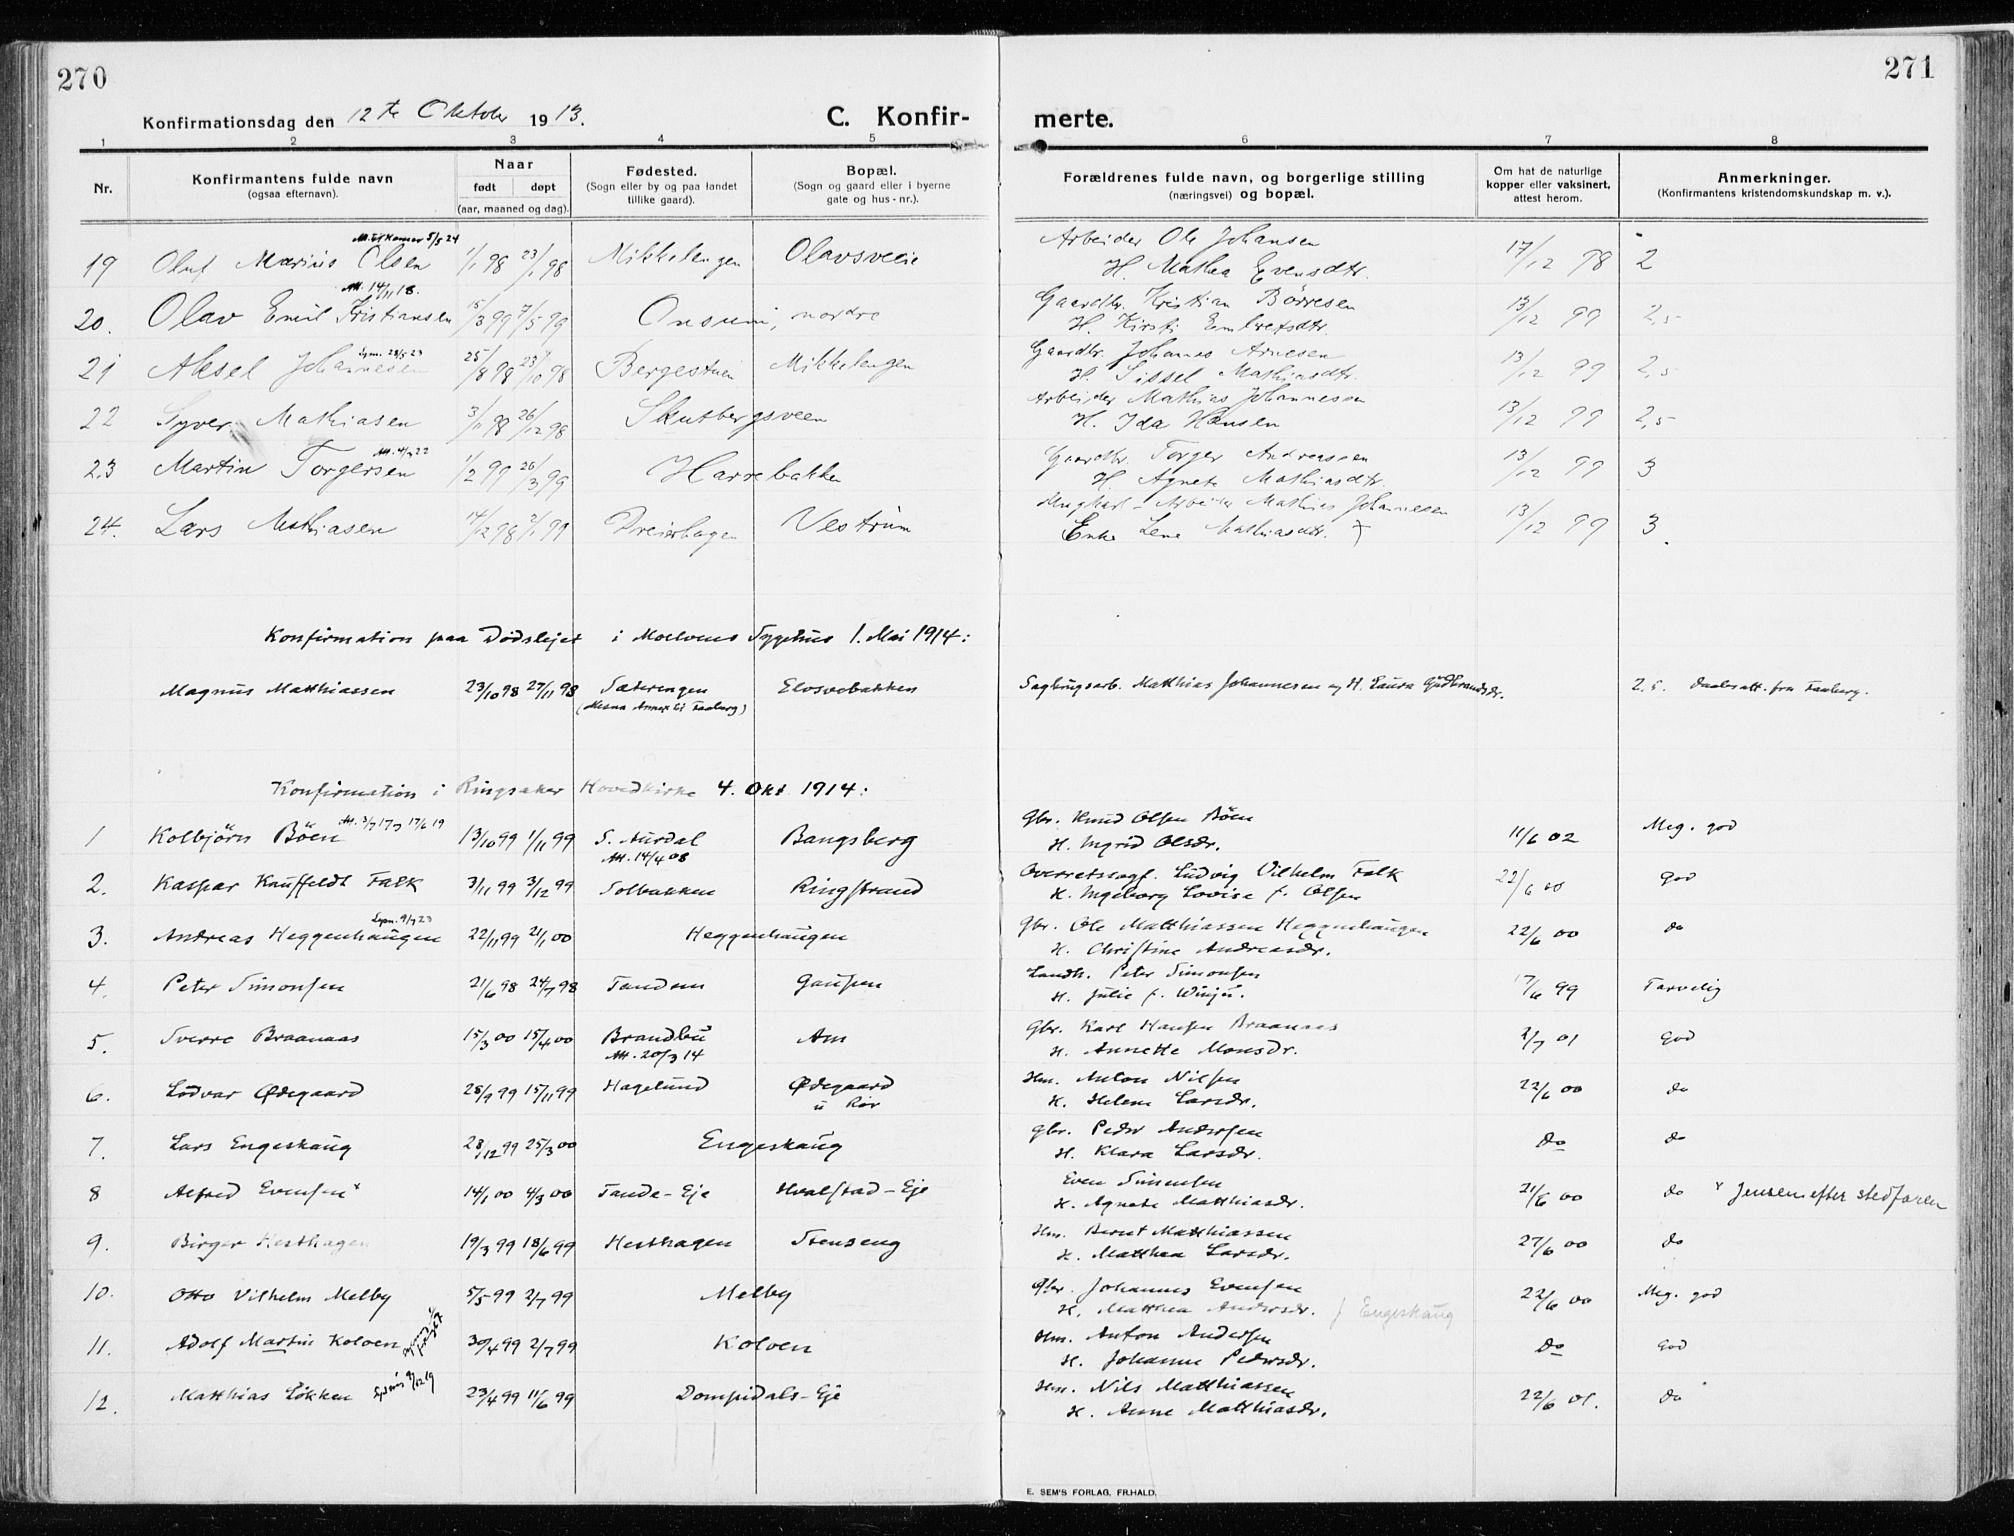 270
271
Konfirmationsdag den 12te Oktober 1913.
C. Konfirmerte.
1 2 3 4 5 6 7 8
Nr.
Konfirmantens fulde navn
(ogsaa efternavn).
Naar
født døpt
(aar, maaned og dag).
Fødested.
(Sogn eller by og paa landet
tillike gaard).
Bopæl.
(Sogn og gaard eller i byerne
gate og hus-nr.).
Forældrenes fulde navn, og borgerlige stilling
(næringsvei) og bopæl.
Om hat de naturlige
kopper eller vaksinert,
attest herom.
Anmerkninger.
(Konfirmantens kristendomskundskap m. v.).
5/5 24
19 Oluf Marius Olsen 1/1 98 23/1 98 Mikkelengen Olavsveie Arbeider Ole Johansen 17/12 98 2
H. Mathea Evensdtr.
Att. 14/11 18.
20. Olav Emil Kristiansen 15/3 99 7/5 99 Onsum, nordre Gaardbr. Kristian Børresen 13/12 99 2,5
H. Kirsti Embretsdtr.
28/5 23
21 Aksel Johannesen 25/8 98 23/10 98 Bergestuen Mikkelengen Gaardbr. Johannes Arnesen 13/12 99 2,5
H. Sissel Mathiasdtr.
22 Syver Mathiasen 3/11 98 26/12 98 Skutbergsveen Arbeider Mathias Johannesen 13/12 99 2,5
H. Ida Hansen
23 Martin Torgersen 1/2 99 26/3 99 Harrebakken Gaardbr. Torger Andreassen 13/12 99 3
H. Agnete Mathiasdtr.
24. Lars Mathiasen 14/12 98 2/1 99 Dreierhagen Vestrum Ungkarl - Arbeider Mathias Johannesen 13/12 99 3.
Enke Lene Mathiasdtr.
Konfirmation paa Dødslejet i Moelvens Sygehus 1. Mai 1914:
Magnus Matthiassen 23/10 98 27/11 98 Sæterengen Elosvebakken Sagbrugsarb. Matthias Johannesen og H. Laura Gudbrandsdr. 2,5. Daabsatt. fra Faaberg.
(Mesna Annex til Faaberg)
Konfirmation i Ringsaker Hovedkirke 4. Okt. 1914:
1 Kolbjørn Bøen 13/10 99 1/11 99 S. Aurdal Bangsberg Gbr. Knud Olsen Bøen 11/6 02 Meg. god
Att. 14/4 08 H. Ingrid Olsdr.
2. Kaspar Kauffeldt Falk 3/11 99 3/12 99 Solbakken Ringstrand Overretssagf. Ludvig Vilhelm Falk 22/6 00 God
H. Ingeborg Lovise f. Olsen
9/7 23
3. Andreas Heggenhaugen 22/11 99 21/1 00 Heggenhaugen Gbr. Ole Matthiassen Heggenhaugen 22/6 00 do
H. Christine Andreasdr.
4. Peter Simonsen 21/6 98 24/7 98 Tandem Gaupen Landh. Peter Simonsen 17/6 99 Tarvelig
H. Julie f. Winju.
5. Sverre Braanaas 15/3 00 15/4 00 Brandbu Am Gbr. Karl Hansen Braanaas 2/7 01 God
Att. 20/3 14 H. Annette Monsdr.
6. Lodvar Ødegaard 28/9 99 15/11 99 Hagelund Ødegaard Hm. Anton Nilsen 22/6 00 do
u Rør H. Helene Larsdr.
7. Lars Engeskaug 28/12 99 25/3 00 Engeskaug Gbr. Peder Andersen Do do
H. Klara Larsdr.
8 Alfred Evensen× 14/1 00 4/3 00 Tande-Eje Hvalstad-Eje Even Simensen 21/6 00 do × Jensen efter stedfaren
H. Agnete Matthiasdr.
9. Birger Hesthagen 19/3 99 18/6 99 Hesthagen Stenseng Hm. Bernt Matthiassen 27/6 00 do
H. Matthea Larsdr.
10. Otto Vilhelm Melby 5/5 99 2/7 99 Melby Gbr. Johannes Evensen 22/6 00 Meg. god
H. Matthea Andersdr. f Engeskaug
11. Adolf Martin Kolven 30/4 99 2/7 99 Kolven Hm. Anton Andersen Do God
H. Johanne Pedersdr.
12. Matthias Løkken 23/4 99 11/6 99 Dompidals-Eje Hm. Nils Matthiassen 22/6 01. do
H. Anne Matthiasdr.
E. SEM'S FORLAG, FR.HALD.